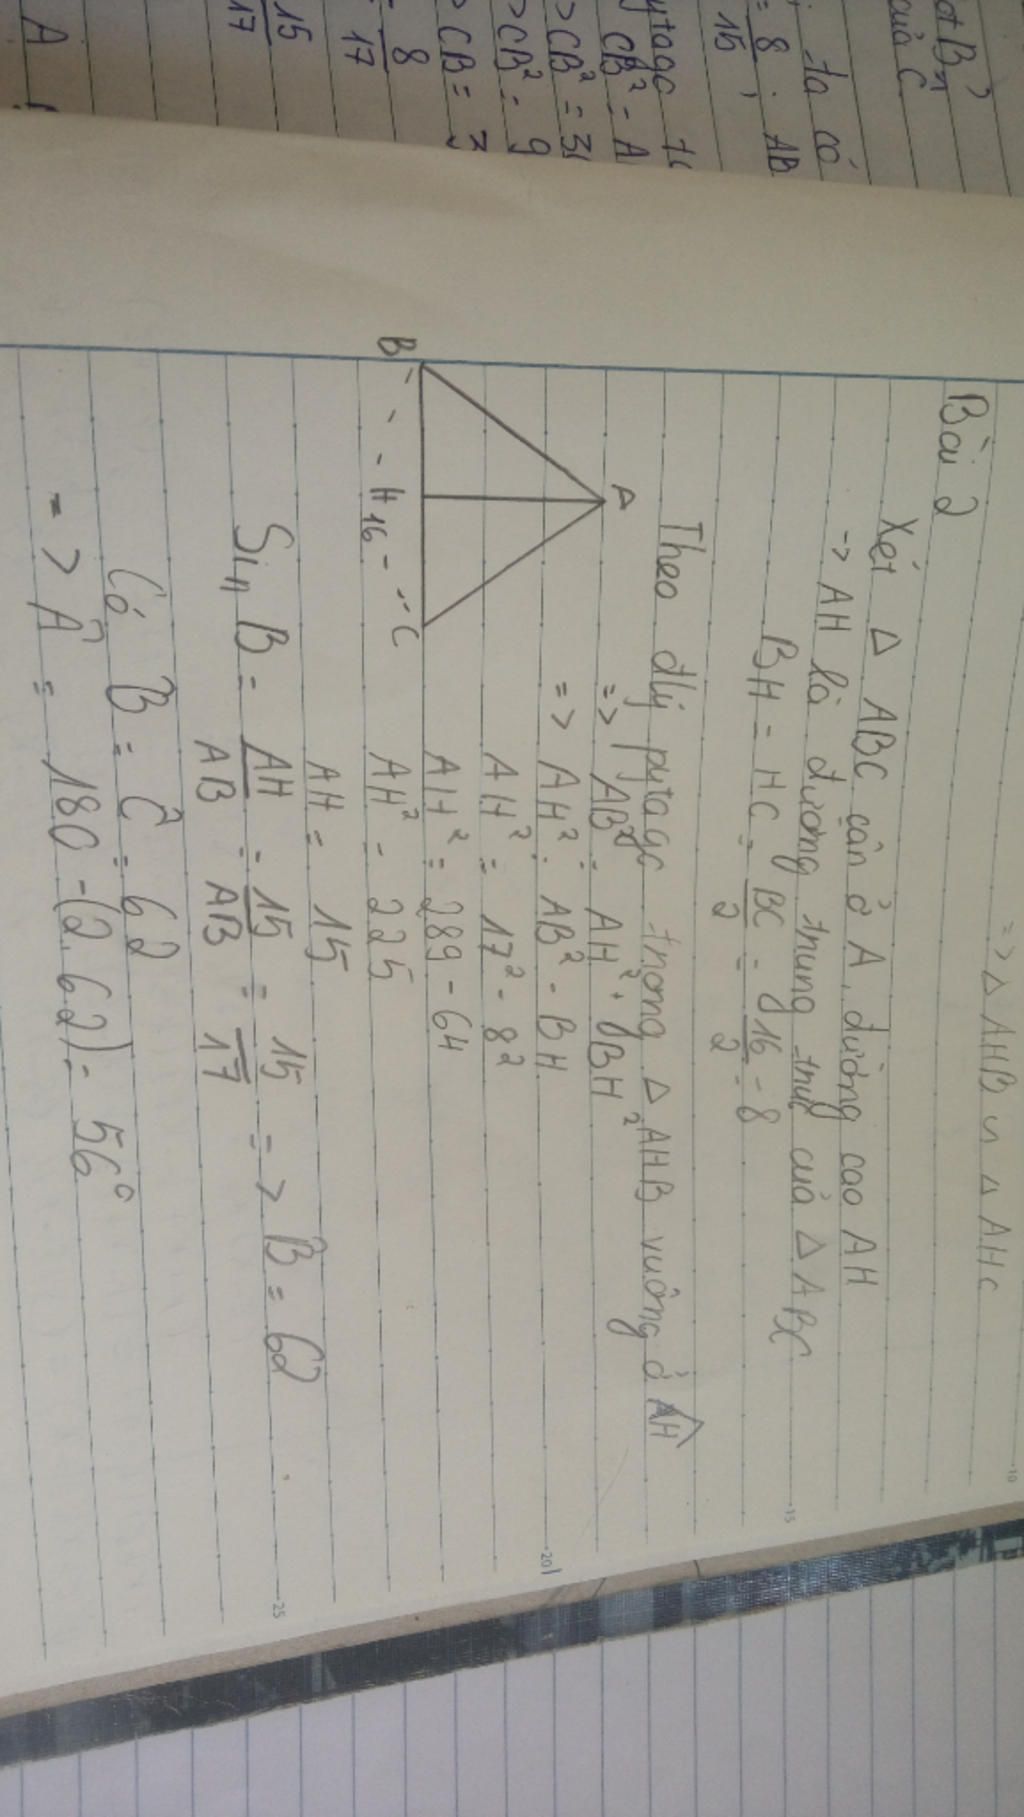 => Δ AHB ∽ Δ AHC
Bài 2
Xét Δ ABC cân ở A, đường cao AH
-> AH là đường trung trực của Δ ABC
BH = HC = BC/2 = 16/2 = 8
Theo đlý pytago trong Δ AHB vuông ở H
=> AB² = AH² + BH²
=> AH² = AB² - BH
AH² = 17² - 8²
AH² = 289 - 64
AH² = 225
AH = 15
A
B
H
16
C
Sin B = AH/AB = 15/AB = 15/17 => B = 62
Có B̂ = Ĉ = 62
=> Â = 180 - (2.62) = 56°
của C
ta có
= 8/15 ; AB
pytago
CB² = A
> CB² =
> CB² = 9
> CB =
8/17
15/17
A
10
15
20
25